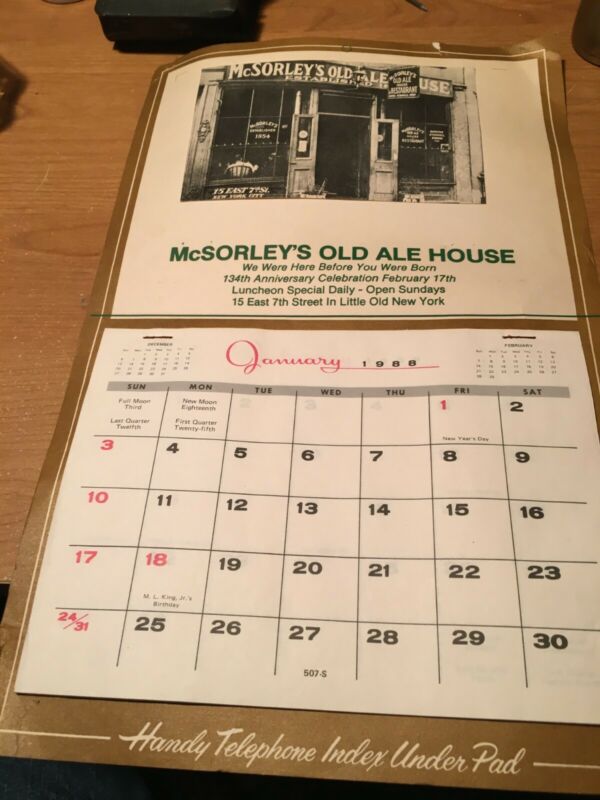 McSORLEY'S OLD ALE HOUSE
ESTABLISHED
McSORLEY'S
OLD ALE
RESTAURANT
McSORLEY'S
ESTABLISHED
1854
RESTAURANT
15 EAST 7th ST.
NEW YORK CITY
McSORLEY'S OLD ALE HOUSE
We Were Here Before You Were Born
134th Anniversary Celebration February 17th
Luncheon Special Daily - Open Sundays
15 East 7th Street In Little Old New York
DECEMBER
January 1988
FEBRUARY
SUN MON TUE WED THU FRI SAT
Full Moon
Third
Last Quarter
Twelfth
New Moon
Eighteenth
First Quarter
Twenty-fifth
1 2
New Year's Day
3 4 5 6 7 8 9
10 11 12 13 14 15 16
17 18 19 20 21 22 23
M. L. King, Jr.'s
Birthday
24/31 25 26 27 28 29 30
507-S
Handy Telephone Index Under Pad